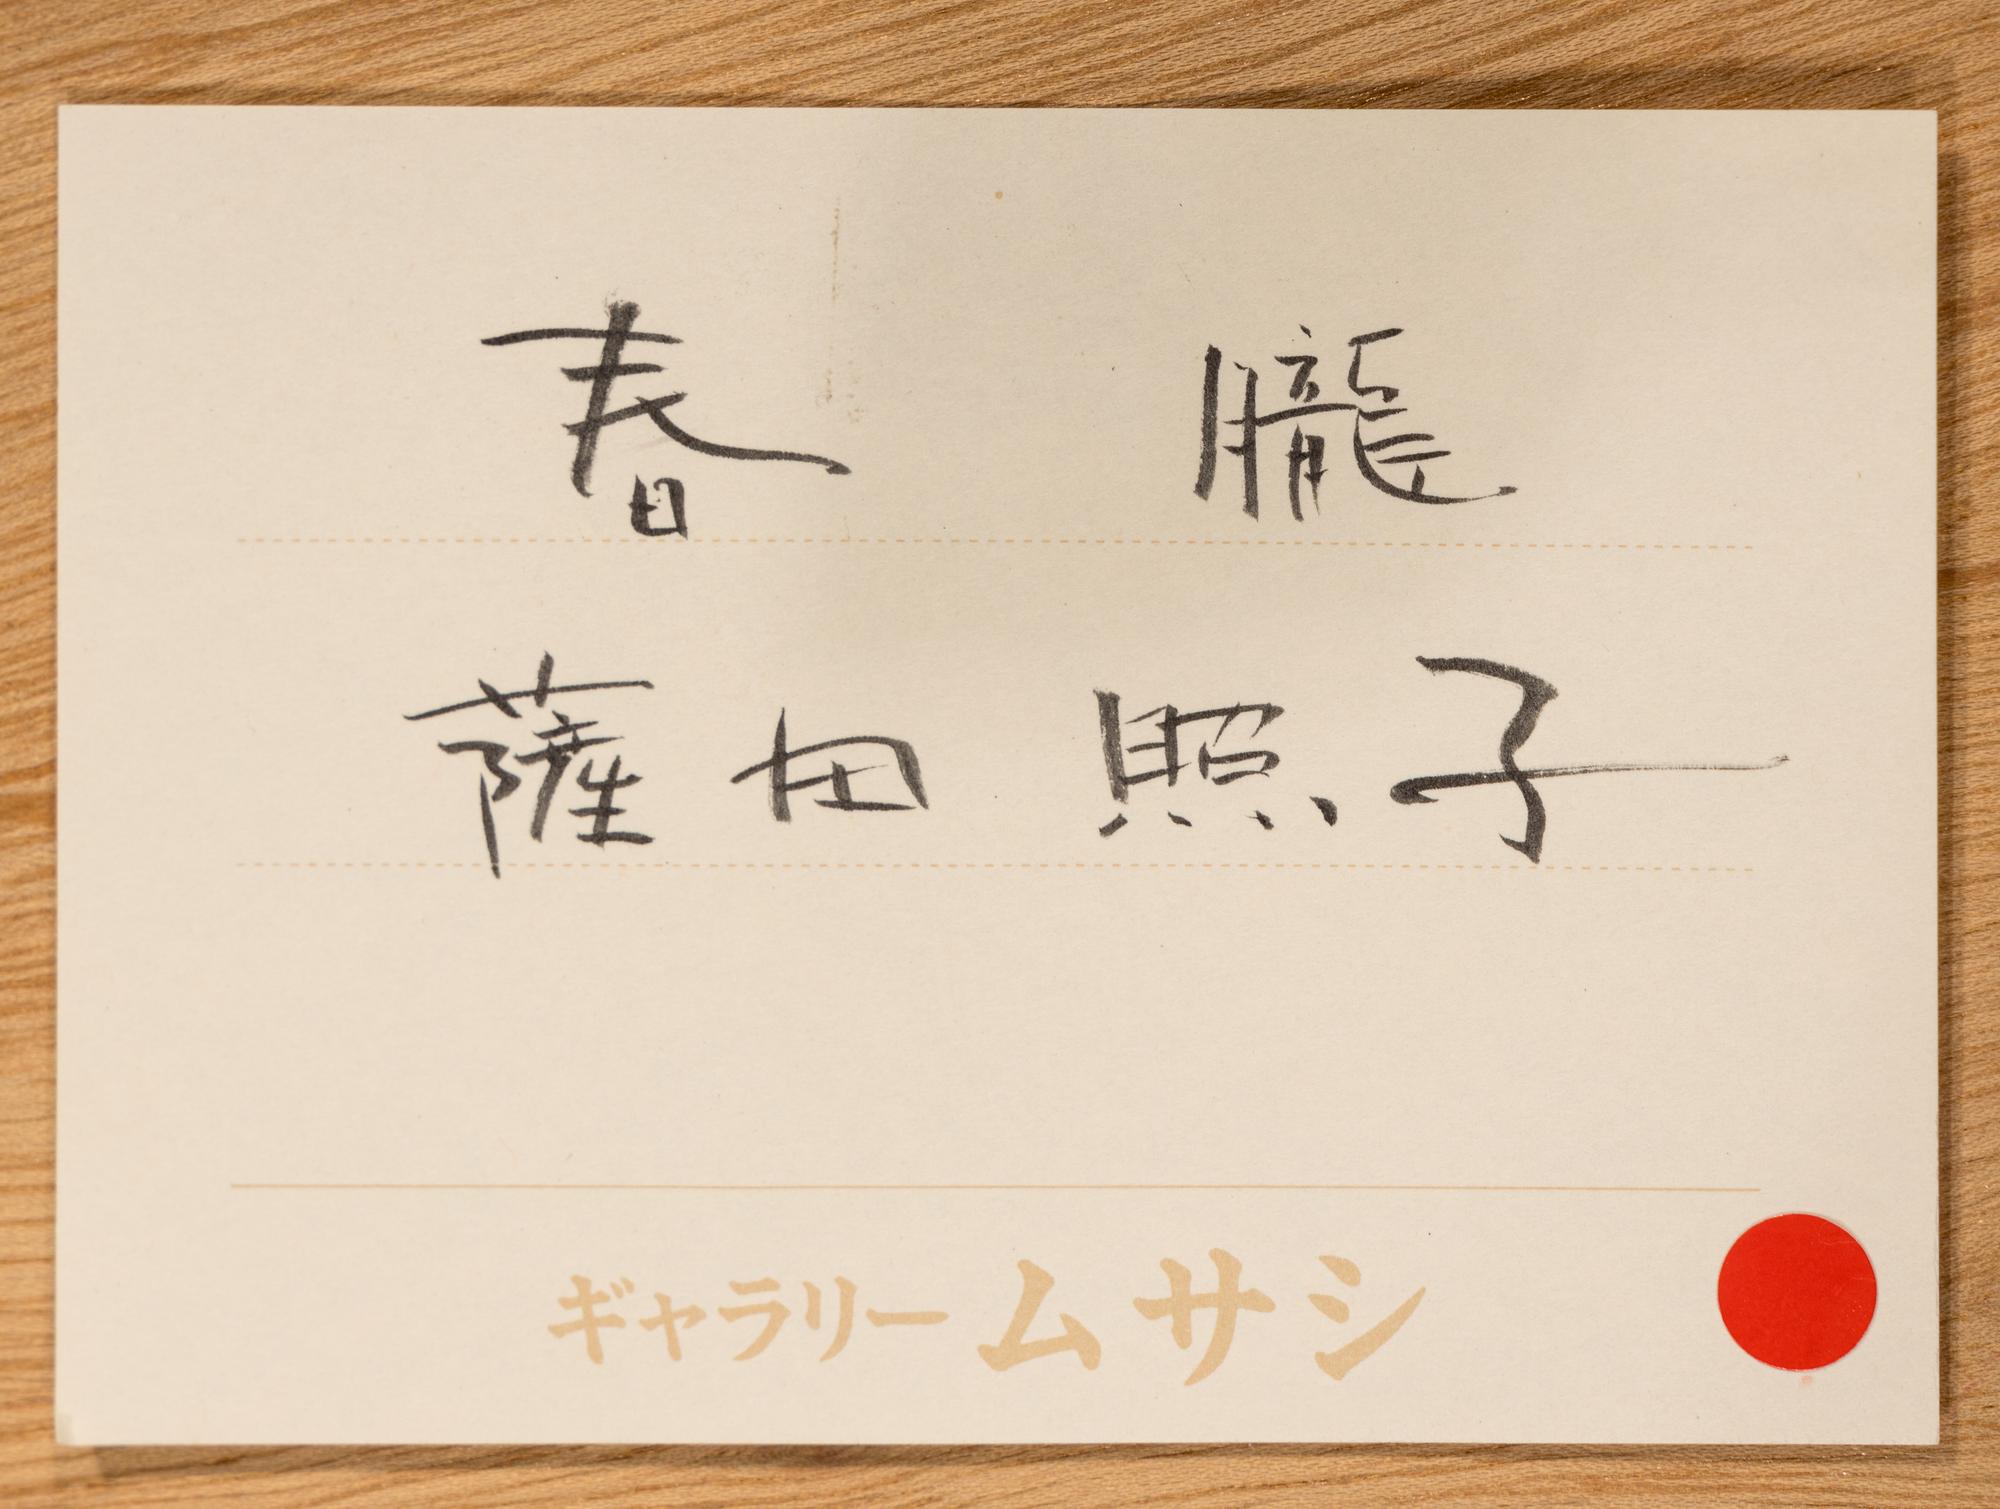 春 朧
薩田 照子
ギャラリー ムサシ